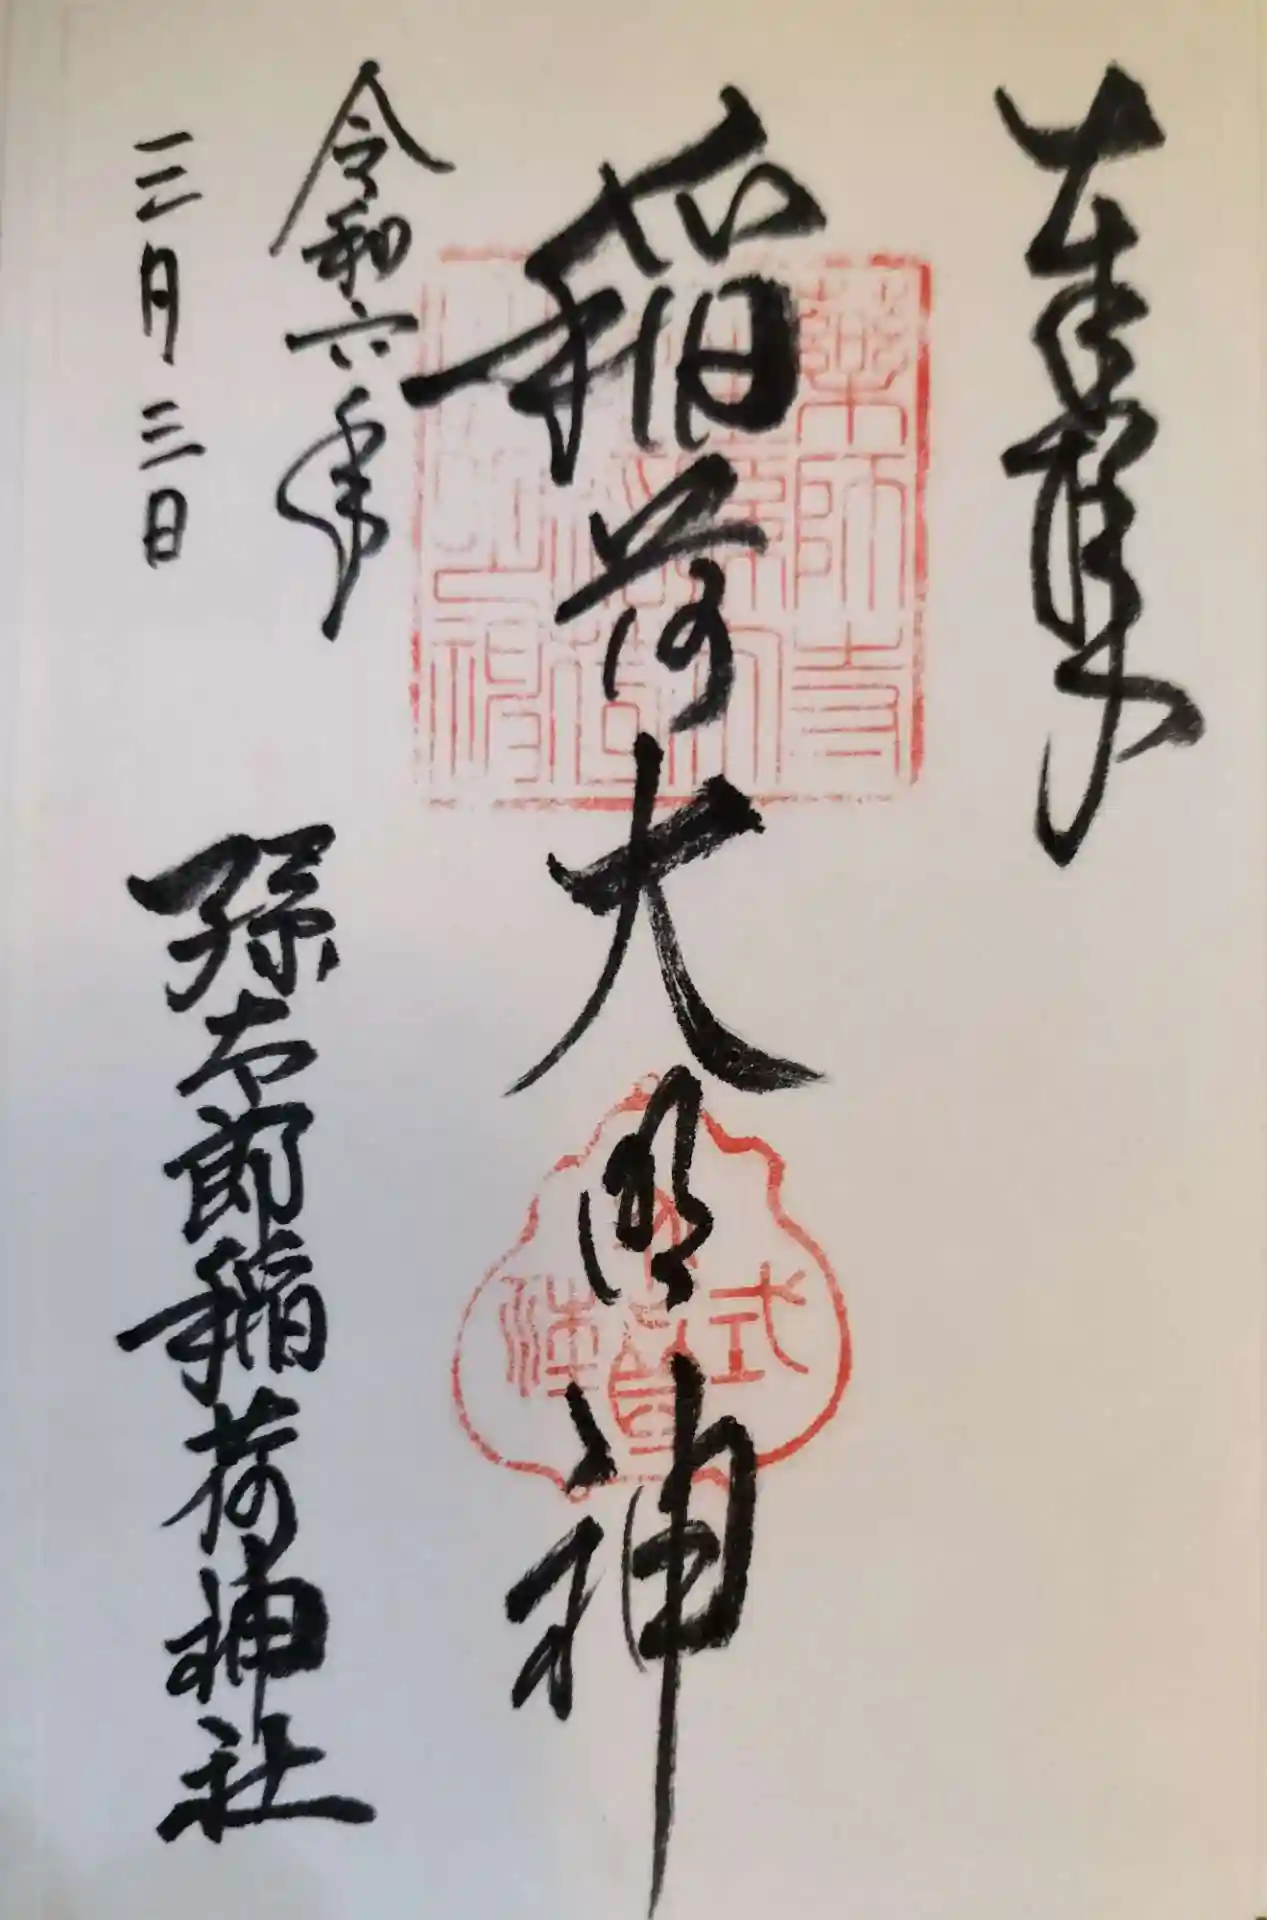 奉拝
稲荷大明神
薬師寺
令和六年
三月三日
孫太郎稲荷神社